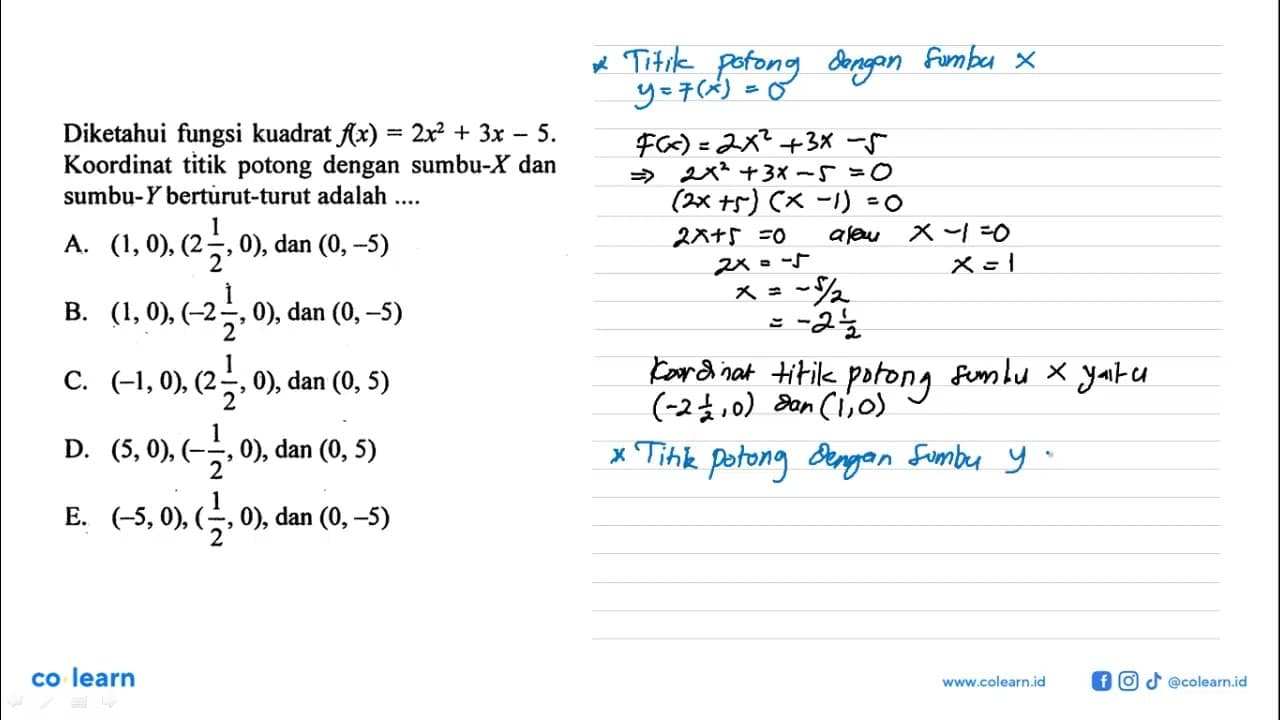 Diketahui fungsi kuadrat f(x) = 2x² + 3x – 5.
Koordinat titik potong dengan sumbu-X dan
sumbu-Y berturut-turut adalah ....
A. (1, 0), (2 1/2, 0), dan (0, –5)
B. (1, 0), (–2 1/2, 0), dan (0, –5)
C. (–1, 0), (2 1/2, 0), dan (0, 5)
D. (5, 0), (–1/2, 0), dan (0, 5)
E. (–5, 0), (1/2, 0), dan (0, –5)
* Titik potong dengan sumbu x
y = f(x) = 0
F(x) = 2x² + 3x – 5
⇒ 2x² + 3x – 5 = 0
(2x + 5) (x – 1) = 0
2x + 5 = 0 atau x – 1 = 0
2x = –5 x = 1
x = –5/2
= –2 1/2
Koordinat titik potong sumbu x yaitu
(–2 1/2, 0) dan (1, 0)
* Titik potong dengan sumbu y
co learn
www.colearn.id
@colearn.id